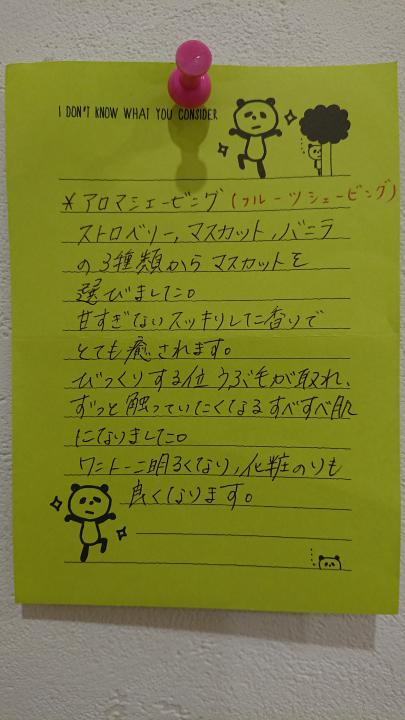 I DON'T KNOW WHAT YOU CONSIDER
*アロマシェービング(フルーツシェービング)
ストロベリー,マスカット,バニラ
の3種類からマスカットを
選びました。
甘すぎないスッキリした香りで
とても癒されます。
びっくりする位うぶ毛が取れ、
ずっと触っていたくなるすべすべ肌
になりました。
ワントーン明るくなり,化粧のりも
良くなります。